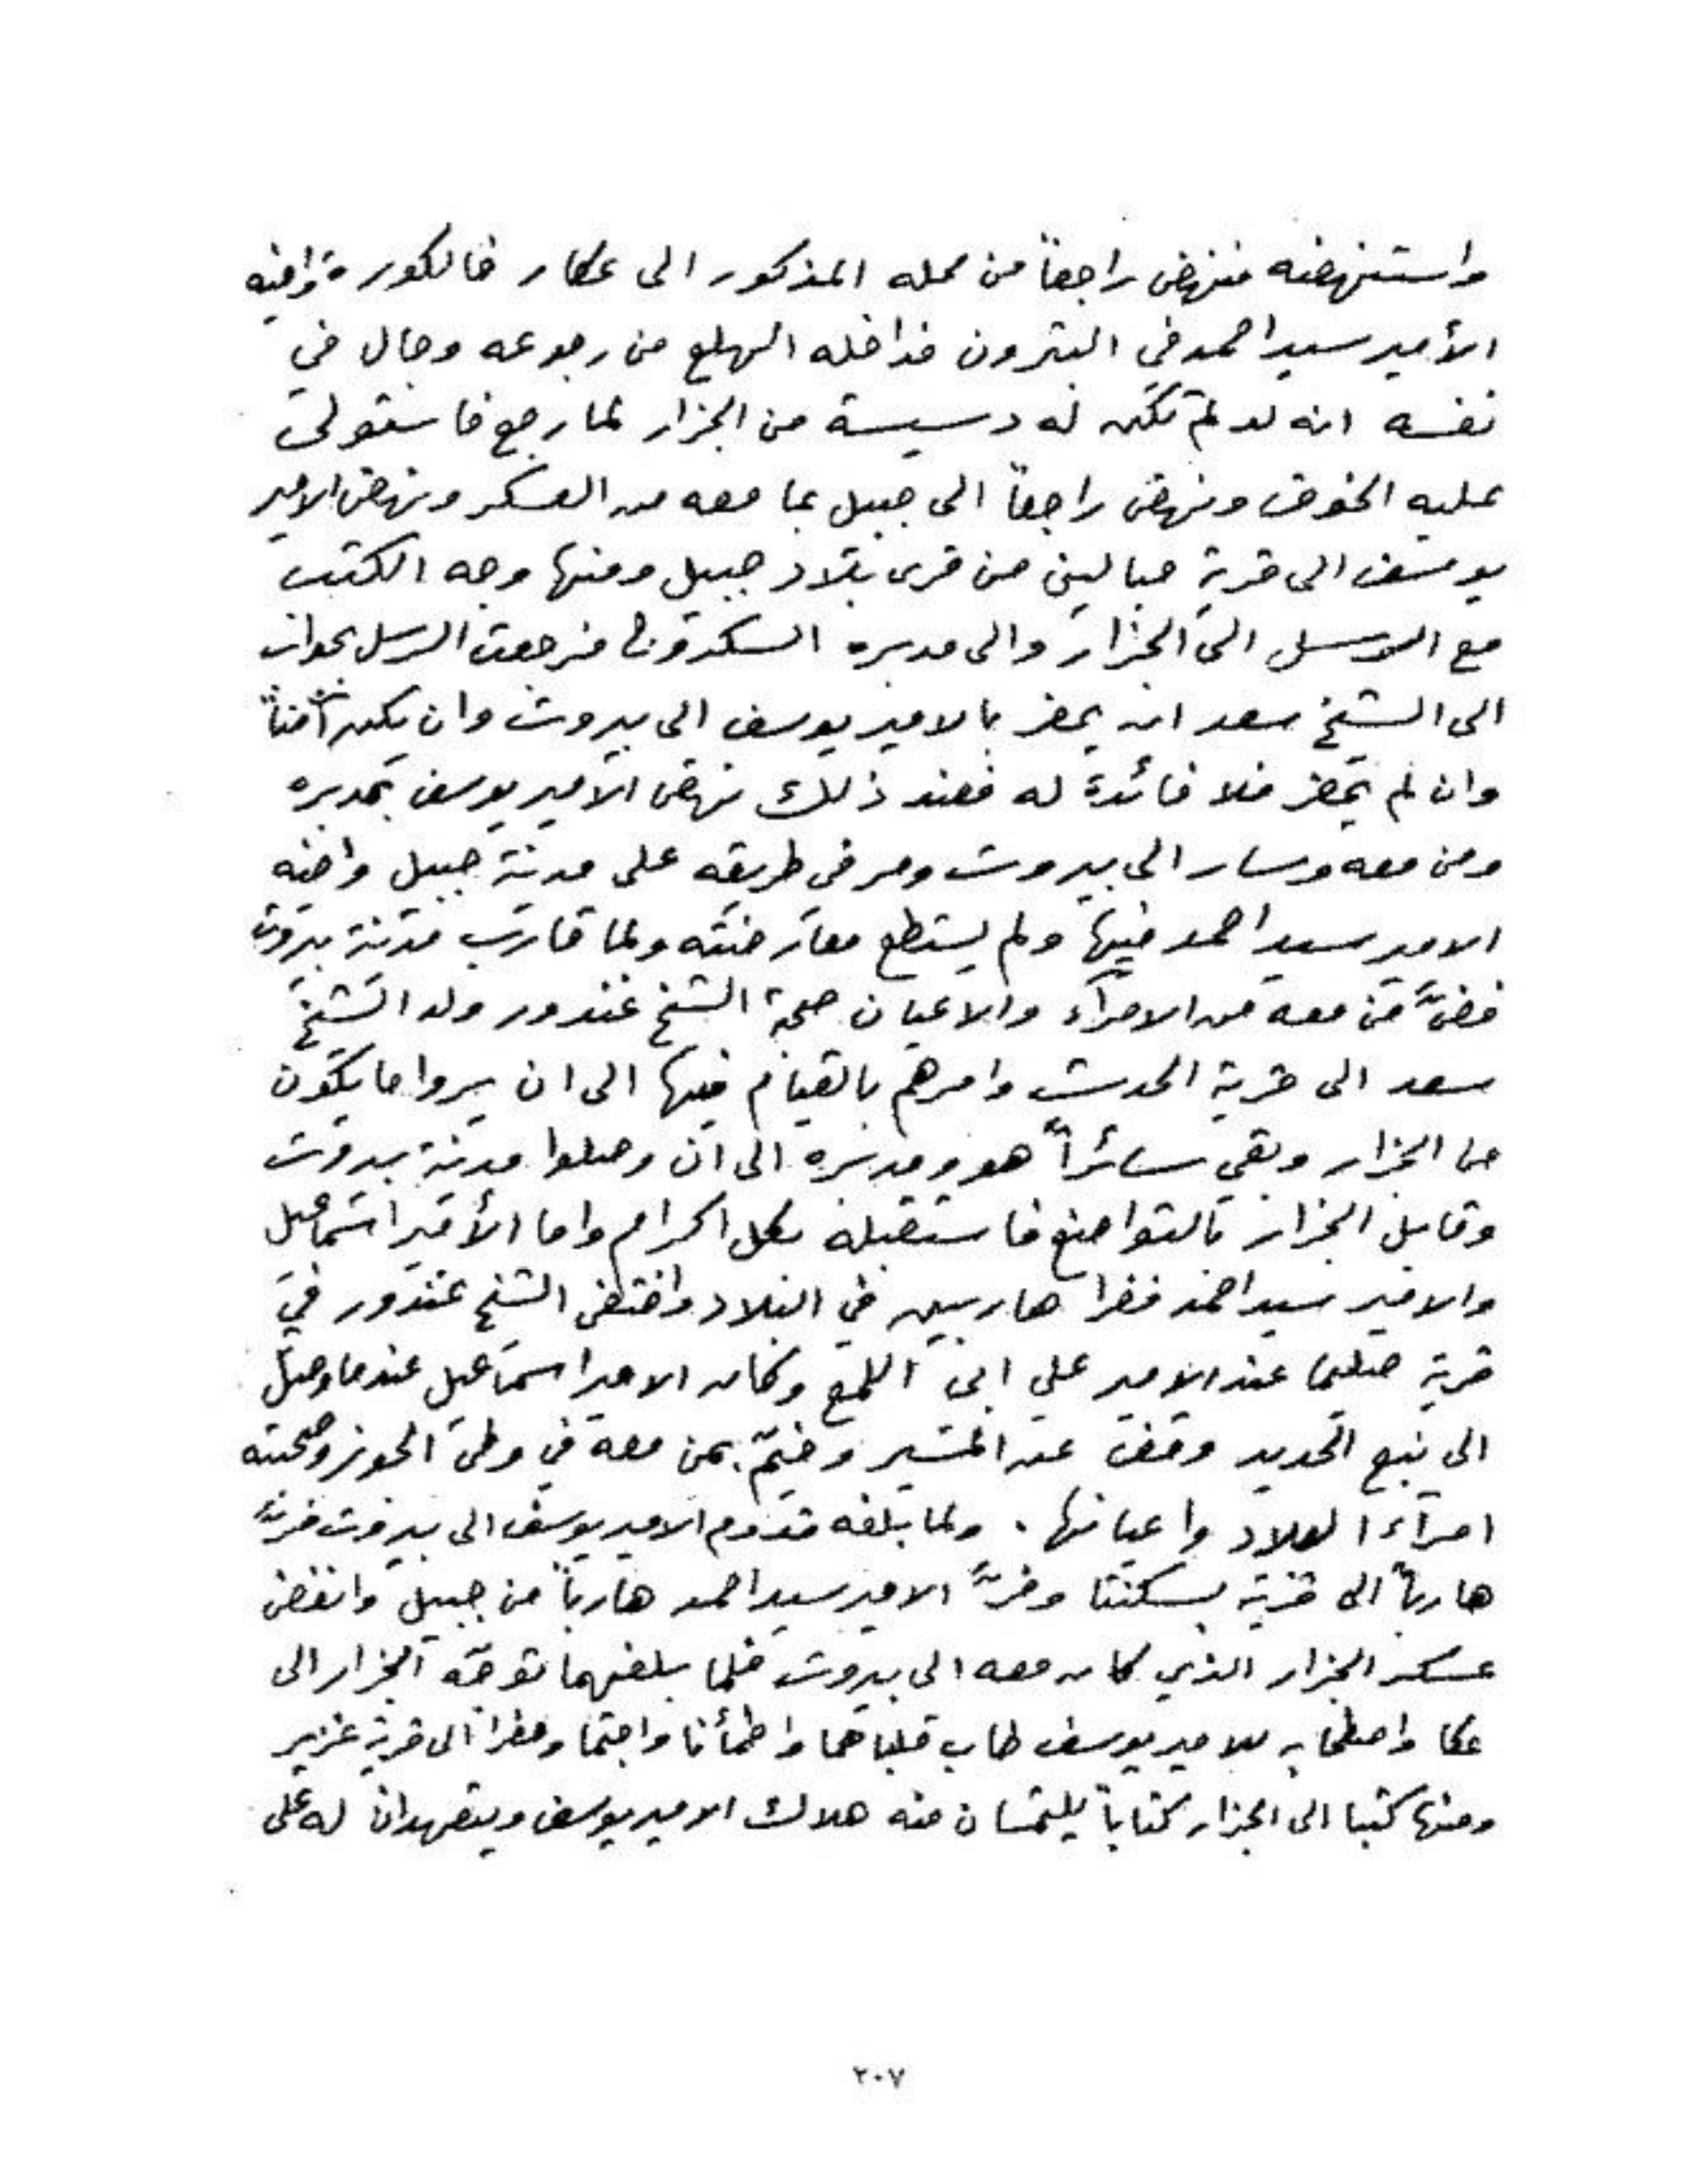 واستنهضه فنهض راجعاً من محله المذكور الى عكار فالكورة وافيه
الأمير سيد احمد في البترون فداخله الهلع من رجوعه وجال في
نفسه انه لو لم تكن له دسيسة من الجزار لما رجع فاستولى
عليه الخوف ونهض راجعاً الى جبيل بما معه من العسكر ونهض الامير
يوسف الى قرية حبالين من قرى بلاد جبيل ومنها وجه الكتب
مع الرسل الى الجزار والى مدبره السكروج فرجعت الرسل بجواب
الى الشيخ سعد ان يحضر بالامير يوسف الى بيروت وان يكن آمناً
وان لم يحضر فلا فائدة له فعند ذلك نهض الامير يوسف بمدبره
ومن معه وسار الى بيروت ومر في طريقه على مدينة جبيل واخيه
الامير سيد احمد فيها ولم يستطع معارضته ولما قارب مدينة بيروت
فضَّ من معه من الامرآء والاعيان صحبة الشيخ غندور ولد الشيخ
سعد الى قرية الحدث وامرهم بالقيام فيها الى ان يروا ما يكون
من الجزار وبقي سائراً هو ومدبره الى ان وصلوا مدينة بيروت
وقابل الجزار بالتواضع فاستقبله بكل اكرام واما الأمير اسماعيل
والامير سيد احمد ففرا هاربين في البلاد واختفى الشيخ غندور في
قرية صليما عند الامير علي ابي اللمع وكان الامير اسماعيل عندما وصل
الى نبع الحديد وقف عن المسير وخيّم بمن معه في وطى الجوز وصحبته
امرآء البلاد واعيانها . ولما بلغه قدوم الامير يوسف الى بيروت فرَّ
هارباً الى قرية بسكنتا وفرَّ الامير سيد احمد هارباً من جبيل وانفض
عسكر الجزار الذي كان معه الى بيروت فلما بلغهما توجّه الجزار الى
عكا واصطحابه للامير يوسف طاب قلباهما واطمأنا واجتمعا وحضرا الى قرية غزير
ومنها كتبا الى الجزار كتاباً يلتمسان منه هلاك الامير يوسف ويتعهدان له على
٢٠٧